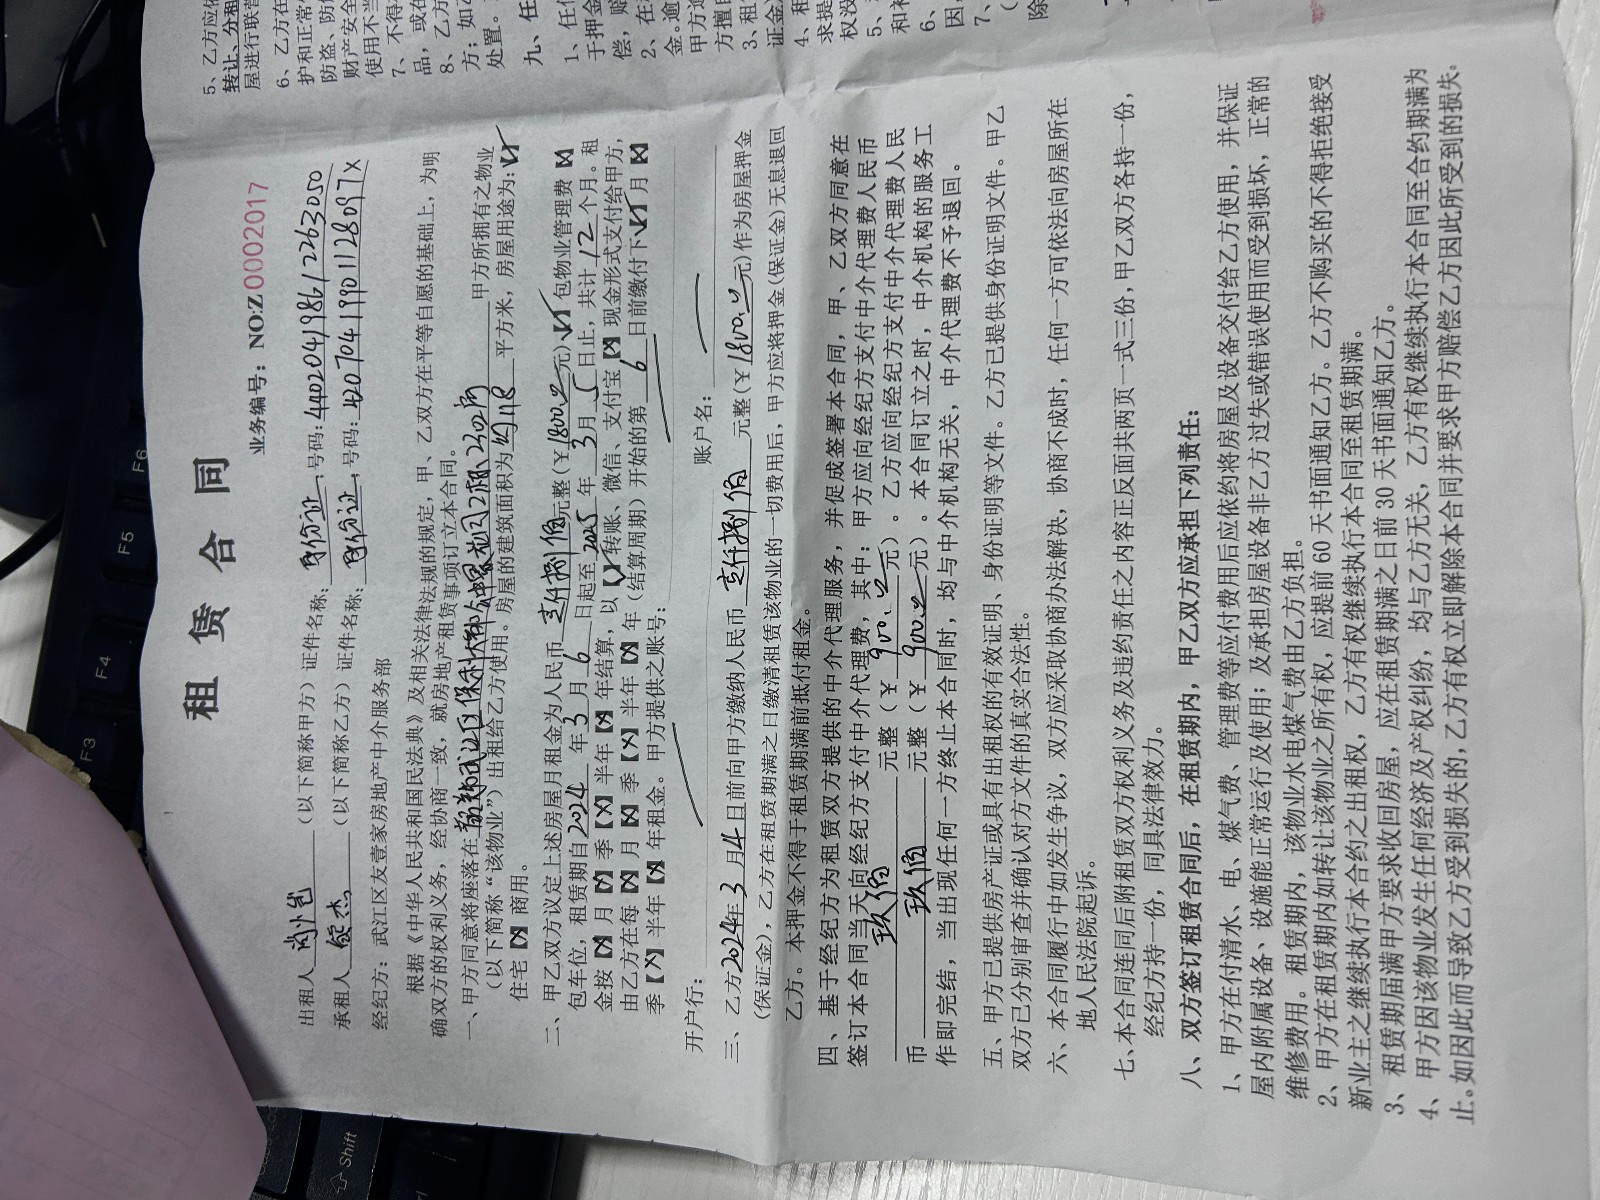 租 赁 合 同
业务编号：NO:Z 0002017
出租人 （以下简称甲方）证件名称：身份证，号码：440204198612263050
承租人 杰（以下简称乙方）证件名称：身份证，号码：42070419901128097X
经纪方：武江区友壹家房地产中介服务部
根据《中华人民共和国民法典》及相关法律法规的规定，甲、乙双方在平等自愿的基础上，为明
确双方的权利义务，经协商一致，就房地产租赁事项订立本合同。
一、甲方同意将座落在 韶关市武江区 甲方所拥有之物业
（以下简称“该物业”）出租给乙方使用。房屋的建筑面积为 约118 平方米，房屋用途为：【√】
住宅【×】商用。
二、甲乙双方议定上述房屋月租金为人民币 壹仟捌佰 元整（￥1800.00元）【√】包物业管理费【×】
包车位，租赁期自 2024 年 3 月 6 日起至 2025 年 3 月 5 日止，共计 12 个月。租
金按【×】月【×】季【×】半年【×】年结算，以【√】转账、微信、支付宝【×】现金形式支付给甲方，
由乙方在每【×】月【×】季【×】半年【×】年（结算周期）开始的第 6 日前缴付下【√】月【×】
季【×】半年【×】年租金。甲方提供之账号：
开户行： 账户名：
三、乙方2024年3月4日前向甲方缴纳人民币 壹仟捌佰 元整（￥1800.00元）作为房屋押金
（保证金），乙方在租赁期满之日缴清租赁该物业的一切费用后，甲方应将押金（保证金）无息退回
乙方。本押金不得于租赁期满前抵付租金。
四、基于经纪方为租赁双方提供的中介代理服务，并促成签署本合同，甲、乙双方同意在
签订本合同当天向经纪方支付中介代理费，其中：甲方应向经纪方支付中介代理费人民币
玖佰 元整（￥900.00元）。乙方应向经纪方支付中介代理费人民
币 玖佰 元整（￥900.00元）。本合同订立之时，中介机构的服务工
作即完结，当出现任何一方终止本合同时，均与中介机构无关，中介代理费不予退回。
五、甲方已提供房产证或具有出租权的有效证明、身份证明等文件。乙方已提供身份证明文件。甲乙
双方已分别审查并确认对方文件的真实合法性。
六、本合同履行中如发生争议，双方应采取协商办法解决，协商不成时，任何一方可依法向房屋所在
地人民法院起诉。
七、本合同连同后附租赁双方权利义务及违约责任之内容正反面共两页一式三份，甲乙双方各持一份，
经纪方持一份，同具法律效力。
八、双方签订租赁合同后，在租赁期内，甲乙双方应承担下列责任：
1、甲方在付清水、电、煤气费、管理费等应付费用后应依约将房屋及设备交付给乙方使用，并保证
屋内附属设备、设施能正常运行及使用；及承担房屋设备非乙方过失或错误使用而受到损坏，正常的
维修费用。租赁期内，该物业水电煤气费由乙方负担。
2、甲方在租赁期内如转让该物业之所有权，应提前 60 天书面通知乙方。乙方不购买的不得拒绝接受
新业主之继续执行本合约之出租权，乙方有权继续执行本合同至租赁期满。
3、租赁期届满甲方要求收回房屋，应在租赁期满之日前 30 天书面通知乙方。
4、甲方因该物业发生任何经济及产权纠纷，均与乙方无关，乙方有权继续执行本合同至合约期满为
止。如因此而导致乙方受到损失的，乙方有权立即解除本合同并要求甲方赔偿乙方因此所受到的损失。
5、乙方应依
转让、分租
屋进行联营
6、乙方在
护和正常
防盗、防
财产安全
使用不当
7、不得
品，或在
8、乙方
方；如
处置。
九、任
1、任
于押金
偿，赔
2、在
金。逾
甲方
方擅自
3、租
证金
4、租
求提
权没
5、
和补
6、
因，
7、
除
F3
F4
F5
F6
Shift